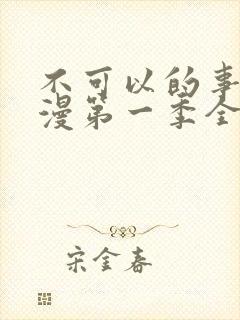 不可以的事
漫第一季全
宋金春